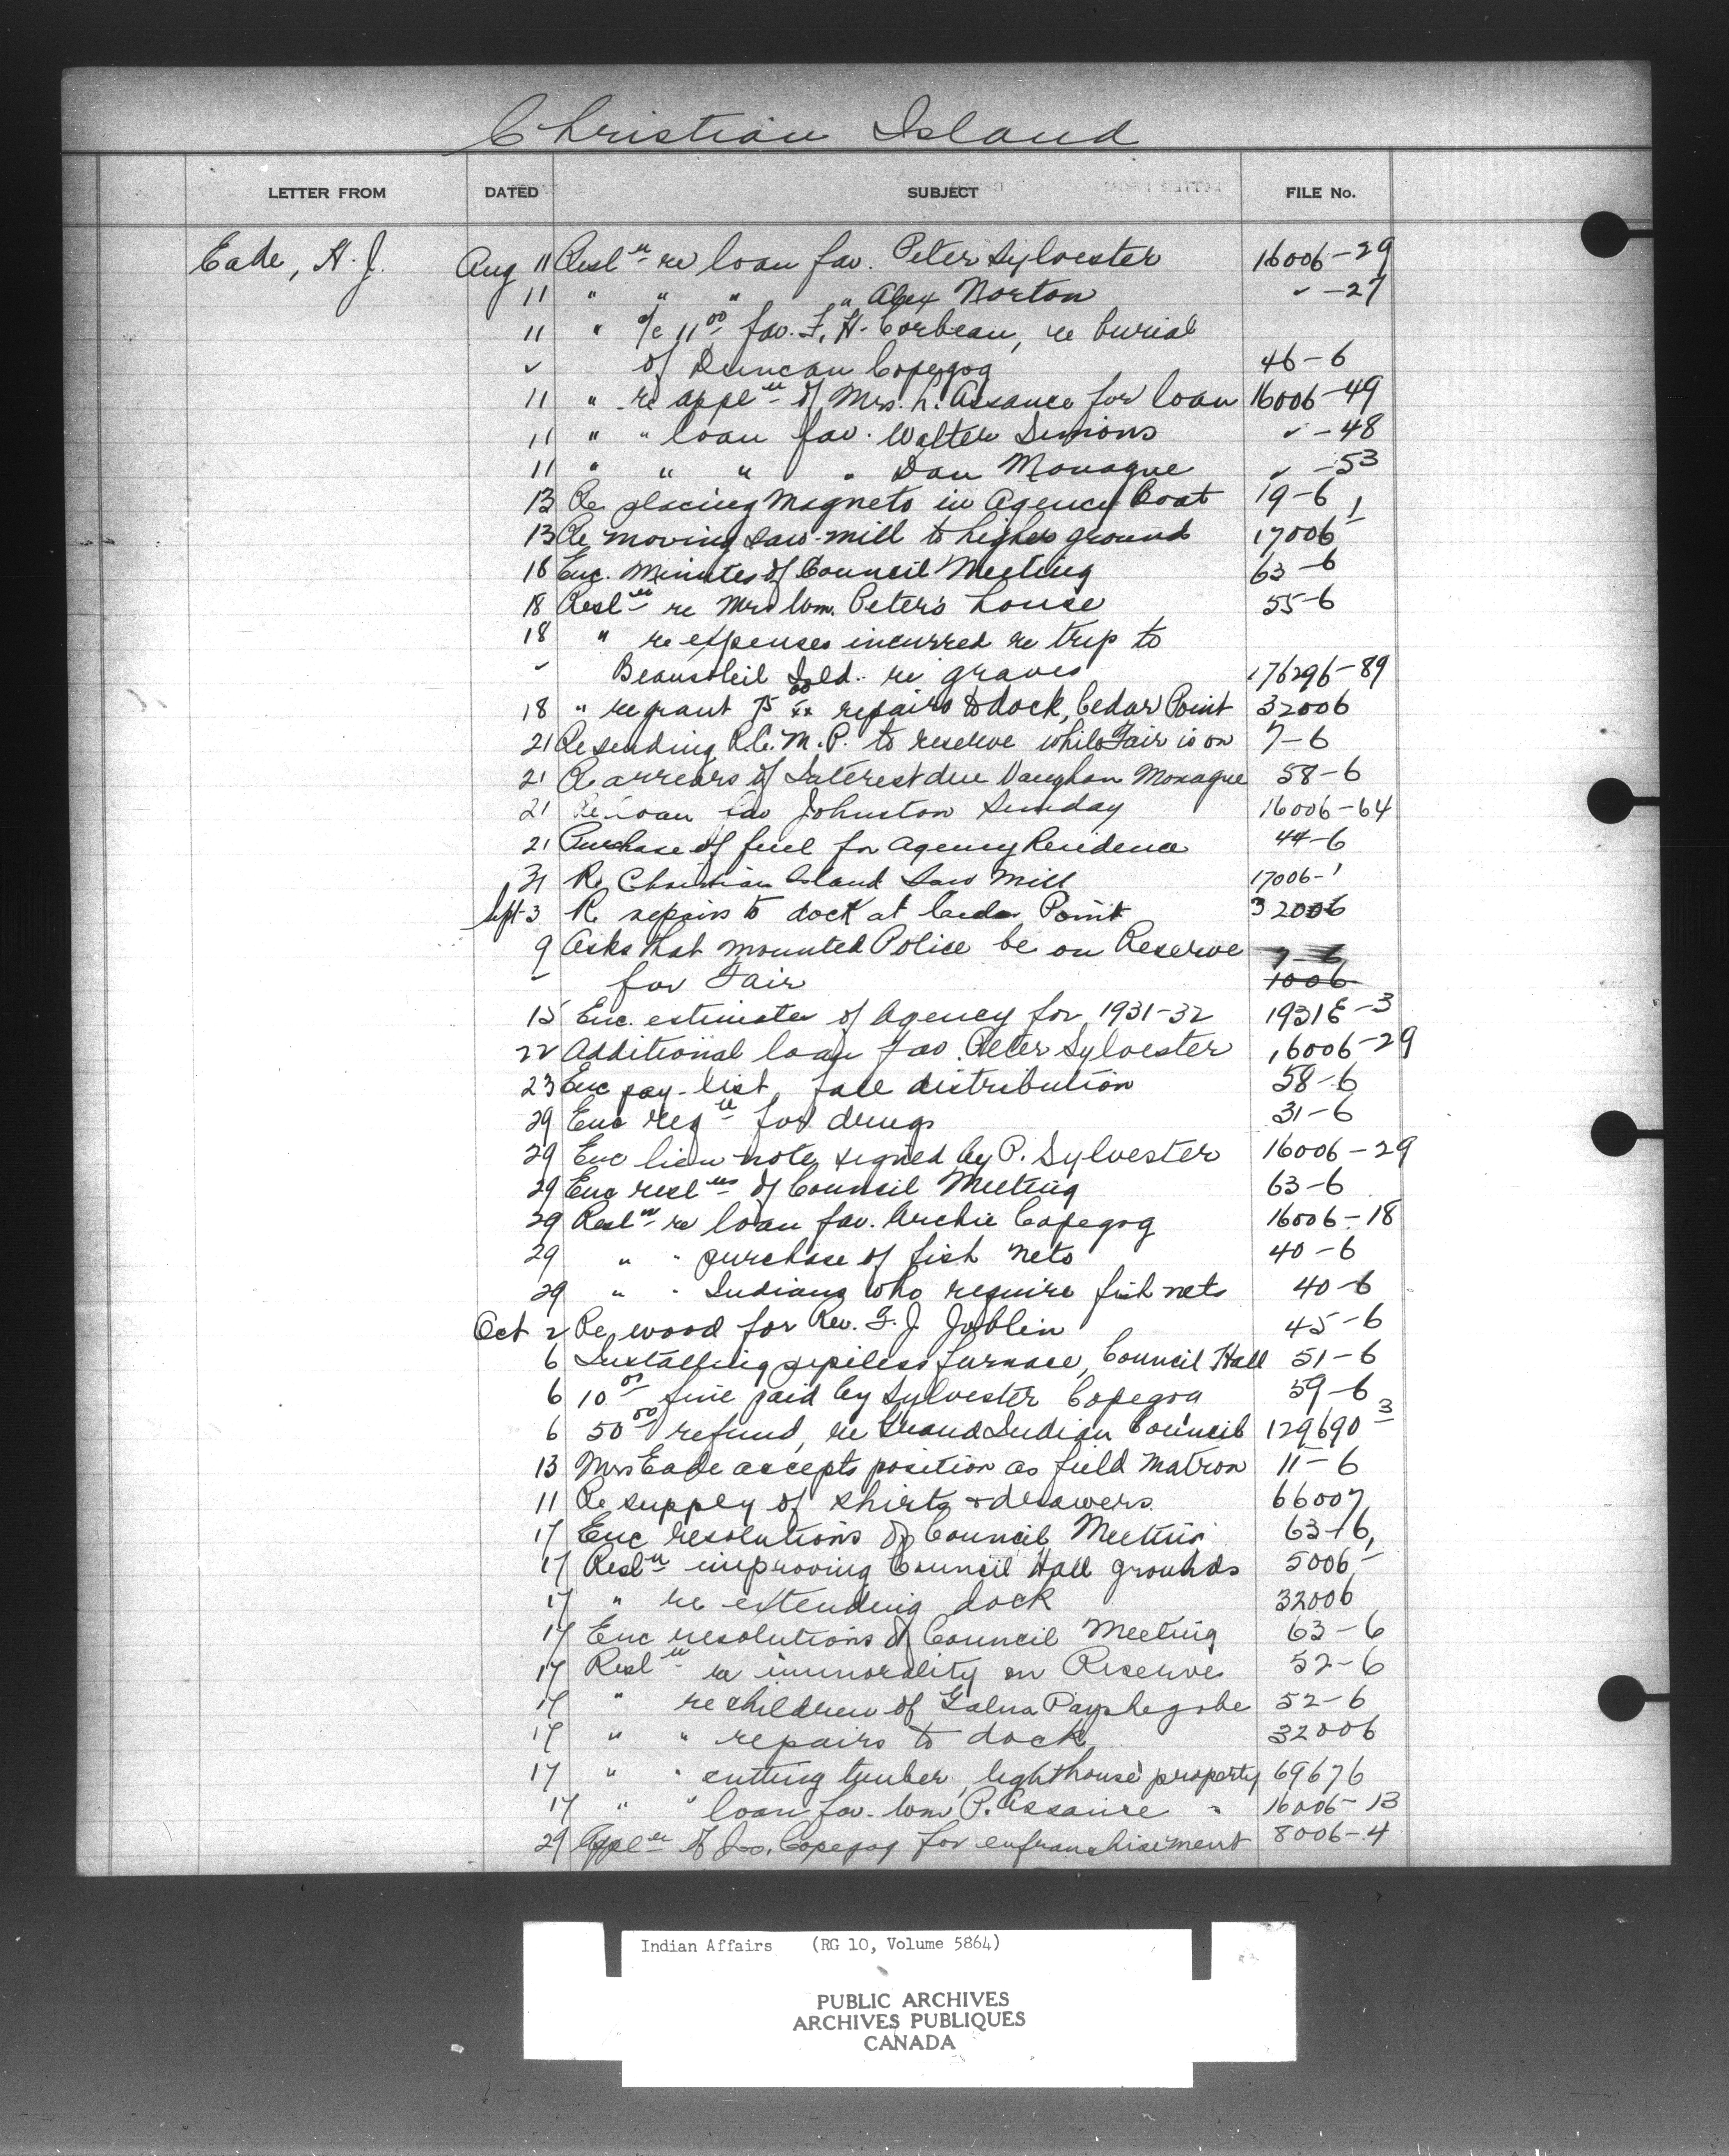 Christian Island
LETTER FROM DATED SUBJECT FILE No.
Eade, H. J. Aug 11 Resl'n re loan fav. Peter Sylvester 16006-29
11 " " " " Alex Norton ✓ -27
11 " a/c 11.00 fav. F. H. Corbeau, re burial
✓ of Duncan Copegog 46-6
11 " re appl'n of Mrs. L. Assance for loan 16006-49
11 " " loan fav. Walter Simons ✓ -48
11 " " " " Dan Monague ✓ -53
13 Re placing Magneto in Agency Boat 19-6
13 Re moving saw-mill to higher ground 17006-1
18 Enc. Minutes of Council Meeting 63-6
18 Resl'n re Mrs Wm. Peter's house 55-6
18 " re expenses incurred re trip to
✓ Beausoleil Isld. re graves 176296-89
18 " re grant 75 00/xx repairs to dock, Cedar Point 32006
21 Re sending R.C.M.P. to reserve while Fair is on 7-6
21 Re arrears of Interest due Vaughan Monague 58-6
21 Re loan fav Johnston Sunday 16006-64
21 Purchase of fuel for Agency Residence 44-6
31 Re Christian Island Saw Mill 17006-1
Sept 3 Re repairs to dock at Cedar Point 32006
9 Asks that mounted Police be on Reserve 7-6
✓ for Fair 1006
15 Enc. estimates of Agency for 1931-32 1931E-3
22 Additional loan fav. Peter Sylvester 16006-29
23 Enc pay-list, fall distribution 58-6
29 Enc req'n for drugs 31-6
29 Enc lien note signed by P. Sylvester 16006-29
29 Enc resl'ns of Council Meeting 63-6
29 Resl'n re loan fav. Archie Copegog 16006-18
29 " " purchase of fish nets 40-6
29 " " Indians who require fish nets 40-6
Oct 2 Re wood for Rev. G. J. Joblin 45-6
6 Installing pipeless furnace, Council Hall 51-6
6 10.00 fine paid by Sylvester Copegog 59-6
6 50.00 refund, re Grand Indian Council 129690-3
13 Mrs Eade accepts position as field Matron 11-6
11 Re supply of shirts & drawers 66007
17 Enc resolutions of Council Meeting 63-6
17 Resl'n improving Council Hall grounds 5006-1
17 " re extending dock 32006
17 Enc resolutions of Council Meeting 63-6
17 Resl'n re immorality on Reserve 52-6
17 " re children of Galna Payshegobe 52-6
17 " " repairs to dock 32006
17 " " cutting timber, lighthouse property 69676
17 " " loan fav. Wm P. Assance 16006-13
29 Appl'n of Jos. Copegog for enfranchisement 8006-4
Indian Affairs (RG 10, Volume 5864)
PUBLIC ARCHIVES
ARCHIVES PUBLIQUES
CANADA